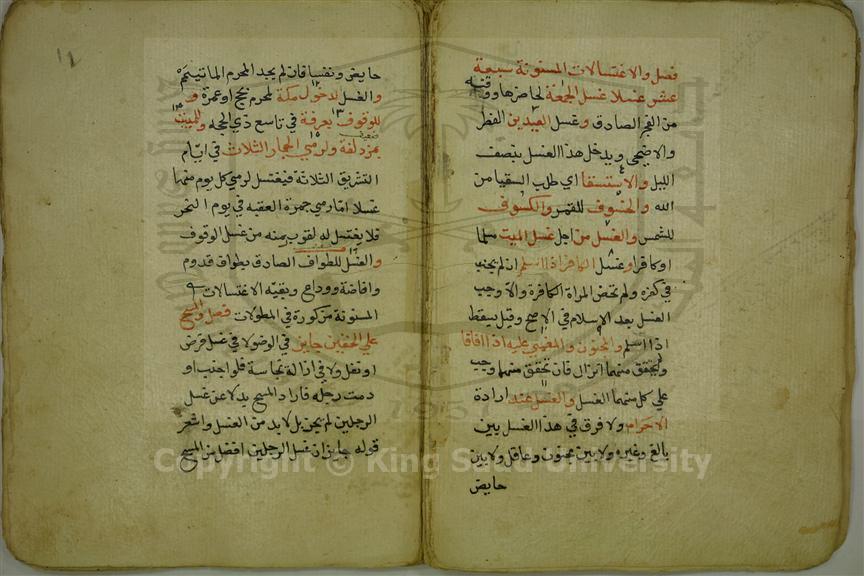 فصل والاغتسالات المسنونة سبعة
عشر غسلا غسل الجمعة لحاضرها ووقته
من الفجر الصادق وغسل العيدين الفطر
والاضحى ويدخل هذا الغسل بنصف
الليل والاستسقا اي طلب السقيا من
الله والخسوف للقمر والكسوف
للشمس والغسل من اجل غسل الميت مسلما
اوكافرا وغسل الكافر اذا اسلم ان لم يجنب
في كفره ولم تحض المراة الكافرة والا وجب
الغسل بعد الاسلام في الاصح وقيل يسقط
اذا اسلم والمجنون والمغمي عليه اذا افاقا
ولم يتحقق منهما انزال فان تحقق منهما وجب
علي كل منهما الغسل والغسل عند ارادة
الاحرام ولا فرق في هذا الغسل بين
بالغ وغيره ولا بين مجنون وعاقل ولا بين
حايض
حايض ونفسا فان لم يجد المحرم الما تيمم
والغسل لدخول مكة لمحرم بحج او عمرة و
للوقوف بعرفة في تاسع ذي الحجه وللمبيت
ضعيف
بمزدلفة ولرمي الجمار الثلاث في ايام
التشريق الثلاثة فيغتسل لرمي كل يوم منها
غسلا اما رمي جمرة العقبه في يوم النحر
فلا يغتسل له لقرب زمنه من غسل الوقوف
والغسل للطواف الصادق بطواف قدوم
وافاضة ووداع وبقيه الاغتسالات
المسنونة مذكورة في المطولات فصل والمسح
علي الخفين جايز في الوضو لا في غسل فرض
او نفل ولا في ازالة نجاسة فلو اجنب او
دمت رجله فاراد المسح بدلا عن غسل
الرجلين لم يجز بل لا بد من الغسل واشعر
قوله جايز ان غسل الرجلين افضل من المسح
Copyright © King Saud University
1957